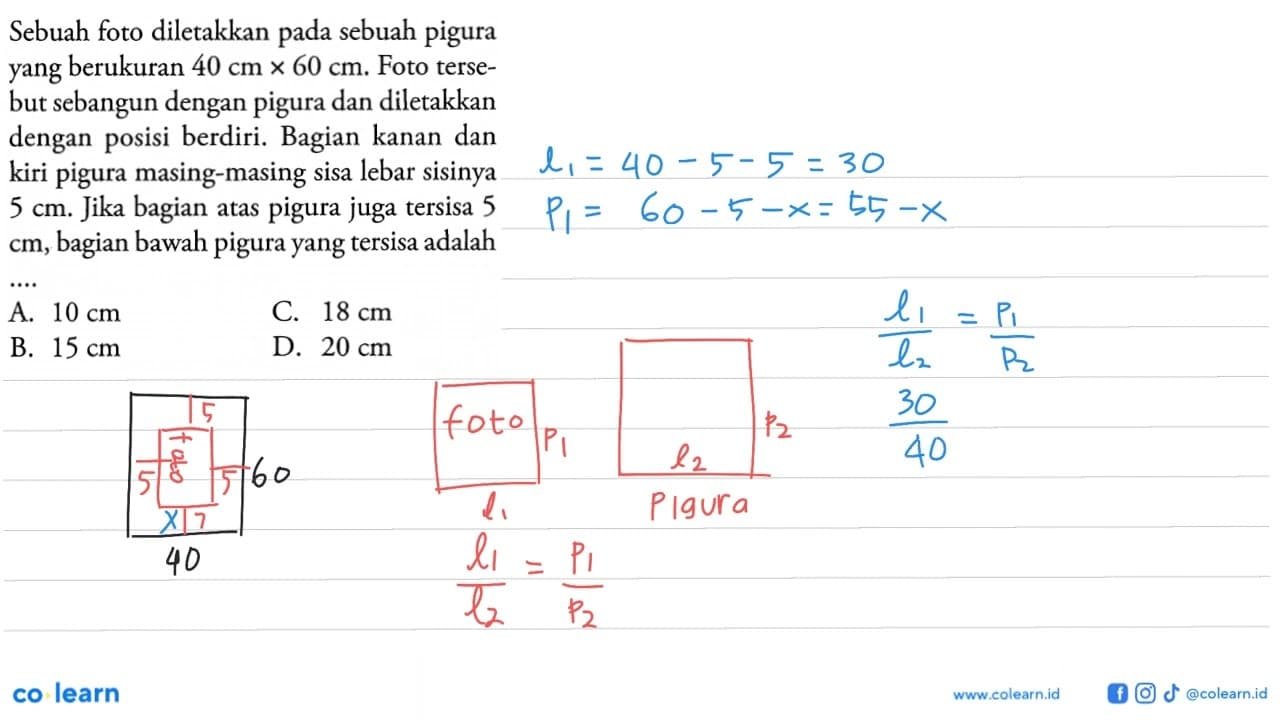 Sebuah foto diletakkan pada sebuah pigura
yang berukuran 40 cm × 60 cm. Foto terse-
but sebangun dengan pigura dan diletakkan
dengan posisi berdiri. Bagian kanan dan
kiri pigura masing-masing sisa lebar sisinya
5 cm. Jika bagian atas pigura juga tersisa 5
cm, bagian bawah pigura yang tersisa adalah
....
A. 10 cm
C. 18 cm
B. 15 cm
D. 20 cm
l₁ = 40 - 5 - 5 = 30
P₁ = 60 - 5 - x = 55 - x
l₁/l₂ = P₁/P₂
30/40
5
foto
5
5
60
x
?
40
foto
P₁
l₁
P₂
l₂
Pigura
l₁/l₂ = P₁/P₂
co learn
www.colearn.id
@colearn.id